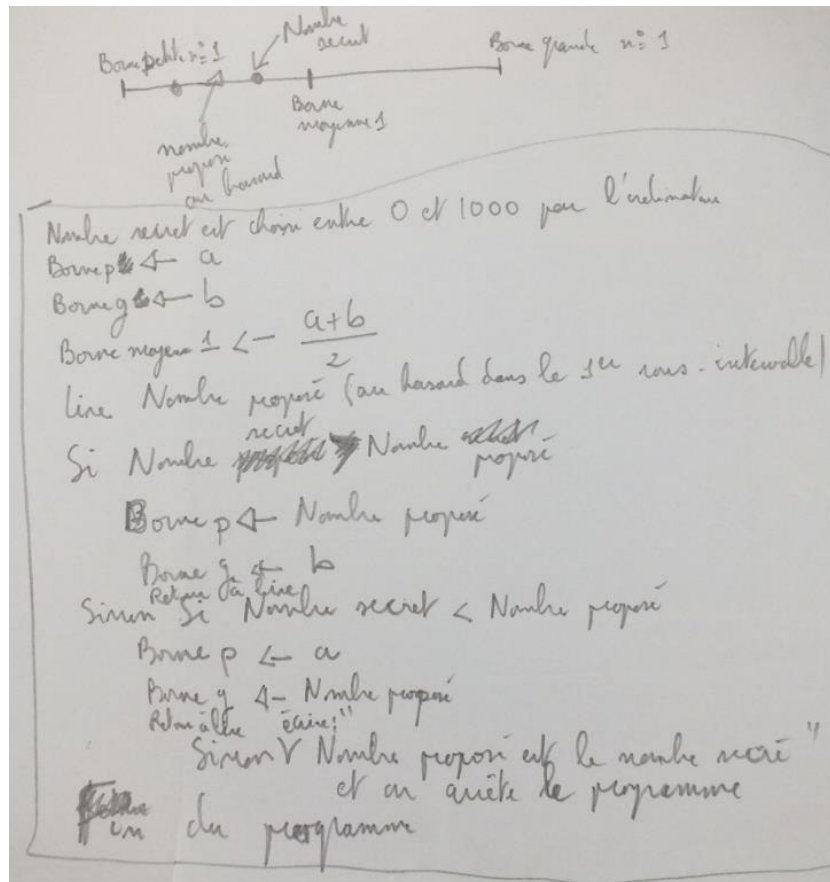 Borne petite n° 1
Nombre secret
Borne grande n° 1
Borne moyenne 1
nombre proposé au hasard
Nombre secret est choisi entre 0 et 1000 par l'ordinateur
Borne p ← a
Borne g ← b
Borne moyenne 1 ← (a+b)/2
Lire Nombre proposé (au hasard dans le 1er sous-intervalle)
Si Nombre secret > Nombre proposé
Borne p ← Nombre proposé
Borne g ← b
Retour à lire
Sinon Si Nombre secret < Nombre proposé
Borne p ← a
Borne g ← Nombre proposé
Retour à lire
Sinon écrire: "Nombre proposé est le nombre secré"
et on arrête le programme
Fin du programme